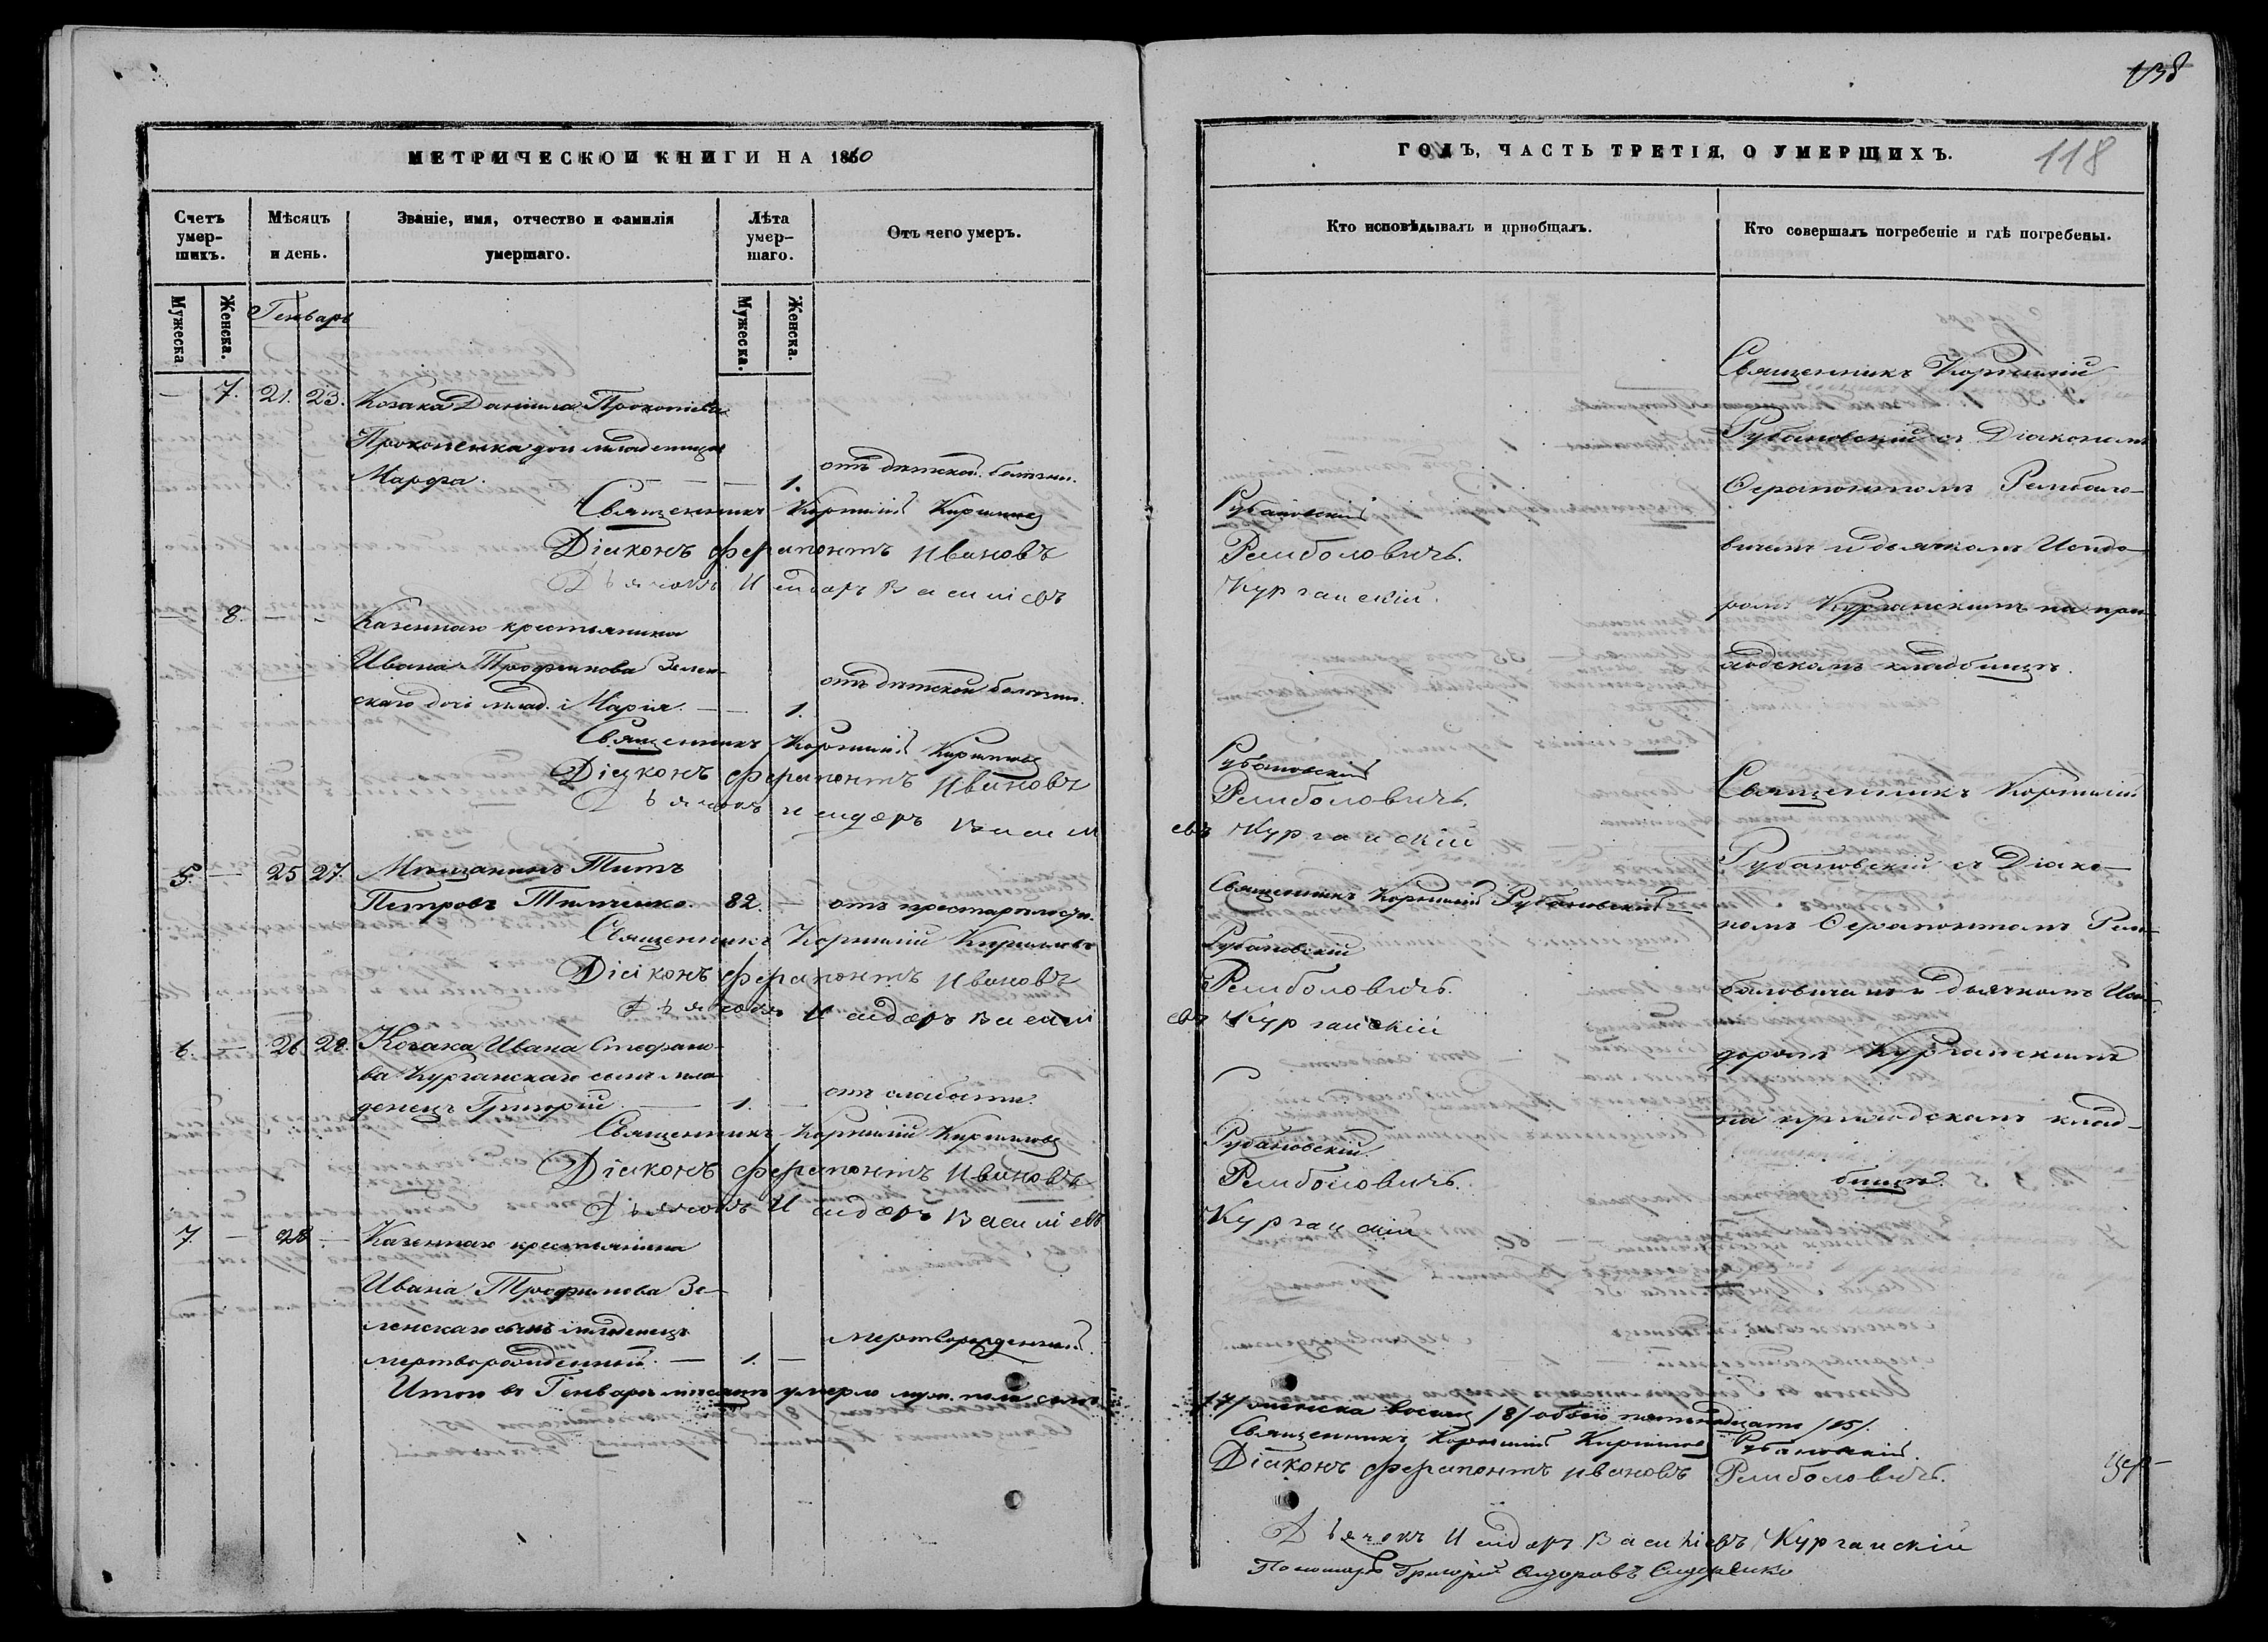 138
МЕТРИЧЕСКОЙ КНИГИ НА 1860
Счетъ умер-шихъ.
Мѣсяцъ и день.
Званіе, имя, отчество и фамилія умершаго.
Лѣта умер-шаго.
Отъ чего умеръ.
Мужеска
Женска.
Мужеска.
Женска.
Генварь
— 7. 21. 23. Козака Даніила Прокопіева
Прокопенка дочь младенецъ
Марфа. — — 1. отъ дѣтской болѣзни.
Священникъ Корнилій Кирилловъ
Діаконъ Ферапонтъ Ивановъ
Дьячокъ Исидоръ Василіевъ
— 8. — - Казеннаго крестьянина
Ивана Трофимова Зелен-
скаго дочь млад. Марія. — — 1. отъ дѣтской болѣзни.
Священникъ Корнилій Кирилловъ
Діаконъ Ферапонтъ Ивановъ
Дьячокъ Исидоръ Васил
5. — 25 27. Мѣщанинъ Титъ
Петровъ Тимченко. 82. — отъ престарѣлости.
Священникъ Корнилій Кирилловъ
Діаконъ Ферапонтъ Ивановъ
Дьячокъ Исидоръ Васил
6. — 26 28. Козака Ивана Стефано-
ва Курганскаго сынъ мла-
денецъ Григорій — 1. — отъ слабости.
Священникъ Корнилій Кирилловъ
Діаконъ Ферапонтъ Ивановъ
Дьячокъ Исидоръ Василіевъ
7. — 28 — Казеннаго крестьянина
Ивана Трофимова Зе-
ленскаго сынъ младенецъ
мертворожденный. — 1. — мертворожденный.
Итого въ Генварѣ мѣсяцѣ умерло муж. пола семь
ГОДЪ, ЧАСТЬ ТРЕТІЯ, О УМЕРШИХЪ.
118
Кто исповѣдывалъ и пріобщалъ.
Кто совершалъ погребеніе и гдѣ погребены.
Рубановскій
Ремболовичъ.
Курганскій.
Рубановскій
Ремболовичъ.
евъ Курганскій
Священникъ Корнилій Рубановскій
Рубановскій
Ремболовичъ.
евъ Курганскій
Рубановскій
Ремболовичъ.
Курганскій
Священникъ Корнилій
Рубановскій съ Діакономъ
Ѳерапонтомъ Рембало-
вичемъ и дьячкомъ Исидо-
ромъ Курганскимъ на при-
ходскомъ кладбищѣ.
Священникъ Корнилій
Рубановскій съ Діако-
номъ Ѳерапонтомъ Рем-
баловичемъ и дьячкомъ Иси-
доромъ Курганскимъ
на приходскомъ клад-
бищѣ.
/7/ женска восемь /8/ обоего пятнадцать /15/.
Священникъ Корнилій Кирилловъ Рубановскій.
Діаконъ Ферапонтъ Ивановъ Ремболовичъ.
Дьячокъ Исидоръ Василіевъ Курганскій
Пономарь Григорій Сидоровъ Сидоренко